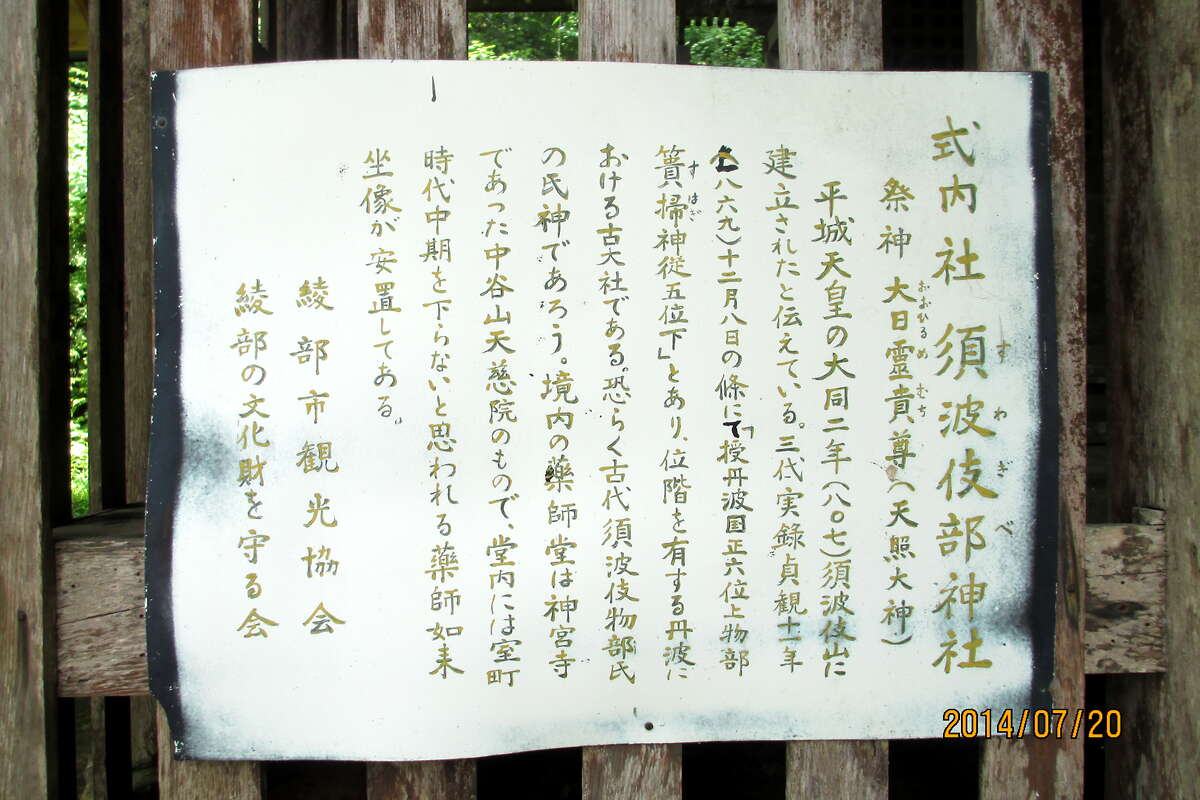 式内社 須波伎部神社
すわぎべ
祭神 大日靈貴尊(天照大神)
おおひるめむち
平城天皇の大同二年(八〇七)須波伎山に
建立されたと伝えている。三代実録貞観十一年
(八六九)十二月八日の條にて「授丹波国正六位上物部
簀掃神従五位下」とあり、位階を有する丹波に
すはぎ
おける古大社である。恐らく古代須波伎物部氏
の氏神であろう。境内の薬師堂は神宮寺
であった中谷山天慈院のもので、堂内には室町
時代中期を下らないと思われる薬師如来
坐像が安置してある。
綾部市観光協会
綾部の文化財を守る会
2014/07/20